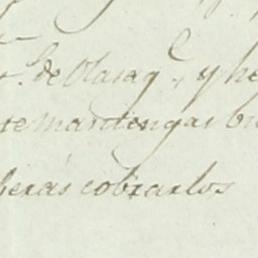 de Olasag.l, y he
te mantengas bu
berás cobrarlos